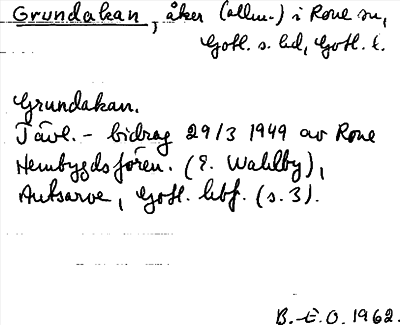 Grundakan, åker (allm.) i Rone sn,
Gotl. s. hd, Gotl. l.
Grundakan.
Tävl.-bidrag 29/3 1949 av Rone
Hembygdsfören. (E. Wahlby),
Autsarve, Gotl. hbf. (s. 3).
B.-E.O. 1962.